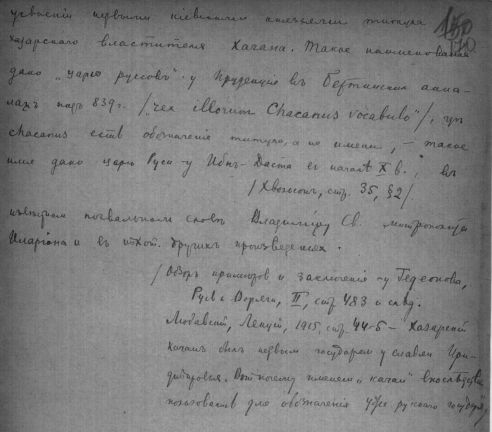 усвоении первыми кiевскими князьями титула 150
хазарскаго властителя Хагана. Такое наименованiе 170
дано „царю руссовъ" у Пруденцiя въ Бертинских анна-
лахъ подъ 839 г. /„rex illorum Chacanus vocabulo"/, гдѣ
chacanus есть обозначенiе титула, а не имени, – такое
имя дано царю Руси у Ибнъ-Даста въ началѣ X в.; въ
/Хвольсонъ, стр. 35, §2/
извѣстном похвальном словѣ Владимiру Св. митрополита
Иларiона и въ других произведенiях.
/Обзоръ примѣров и заключенiе у Гедеонова,
Русь и Варяги, II, стр. 483 и слѣд.
Любавскiй, Лекцiи, 1915, стр. 44-5 – Хазарскiй
каганъ былъ первым государем у славян При-
днѣпровья. Вот почему именем „каган" впослѣдствiи
пользовались для обозначенiя уже русскаго государя",